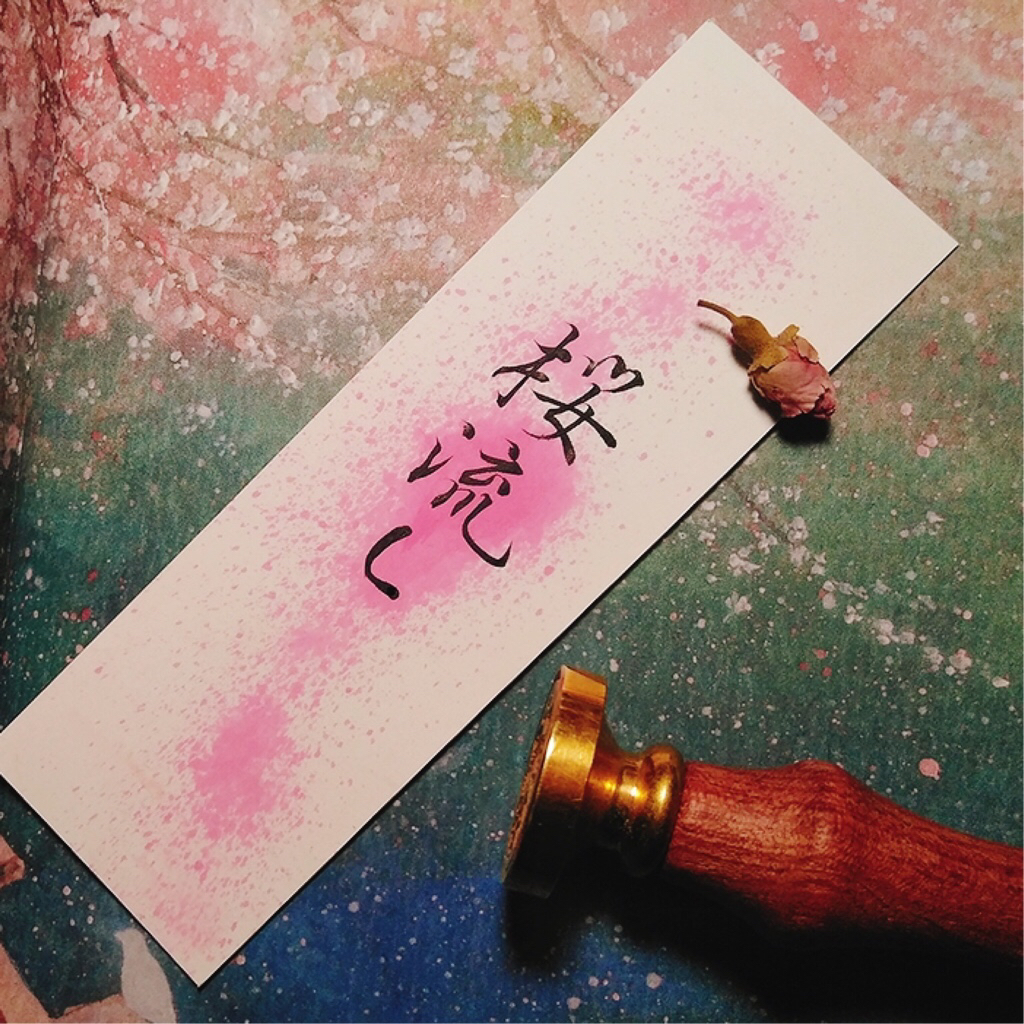 桜流し